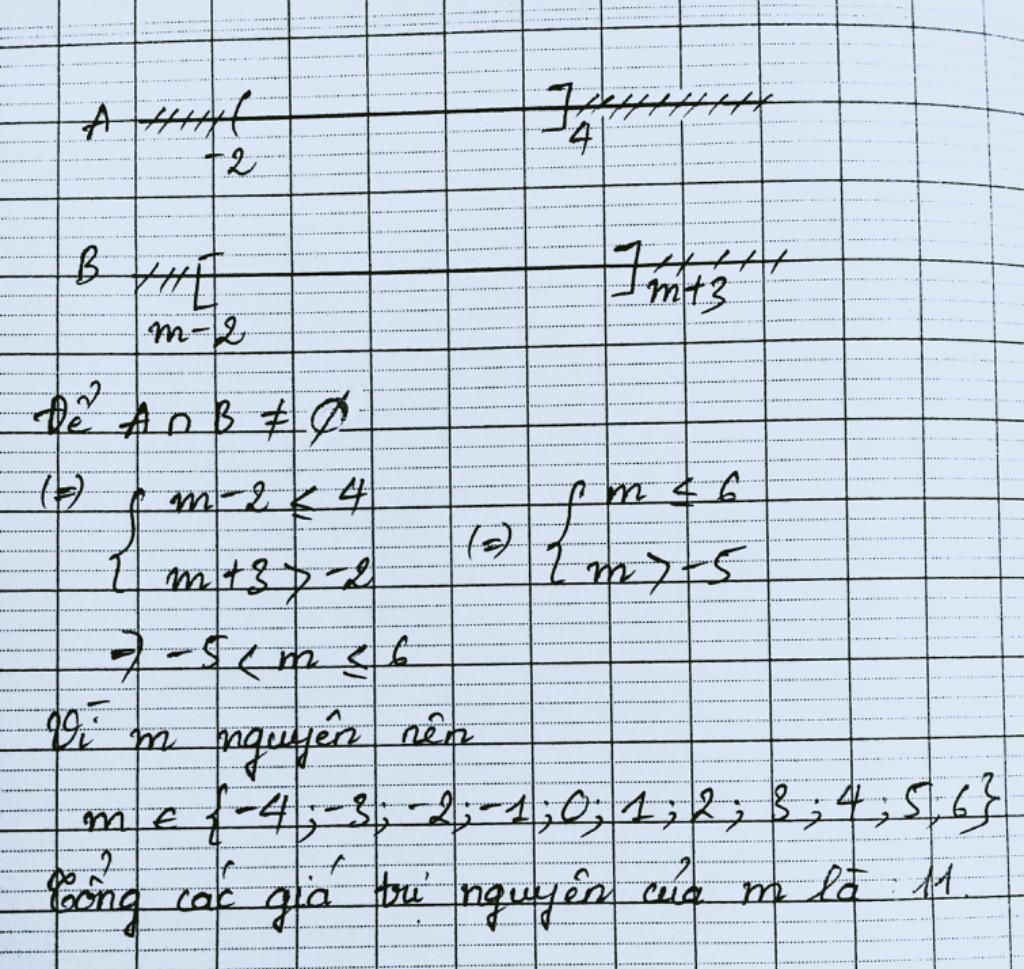 A ( ]
-2 4
B [ ]
m-2 m+3
Để A ∩ B ≠ ∅
(=) { m-2 ≤ 4 (=) { m ≤ 6
m+3 > -2 m > -5
=) -5 < m ≤ 6
Vì m nguyên nên
m ∈ {-4;-3;-2;-1;0;1;2;3;4;5;6}
Tổng các giá trị nguyên của m là 11